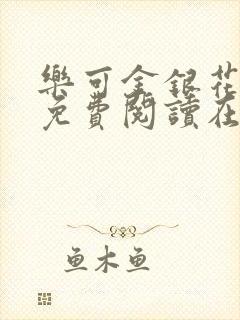 樂可金銀花
免費閱讀在
鱼木鱼